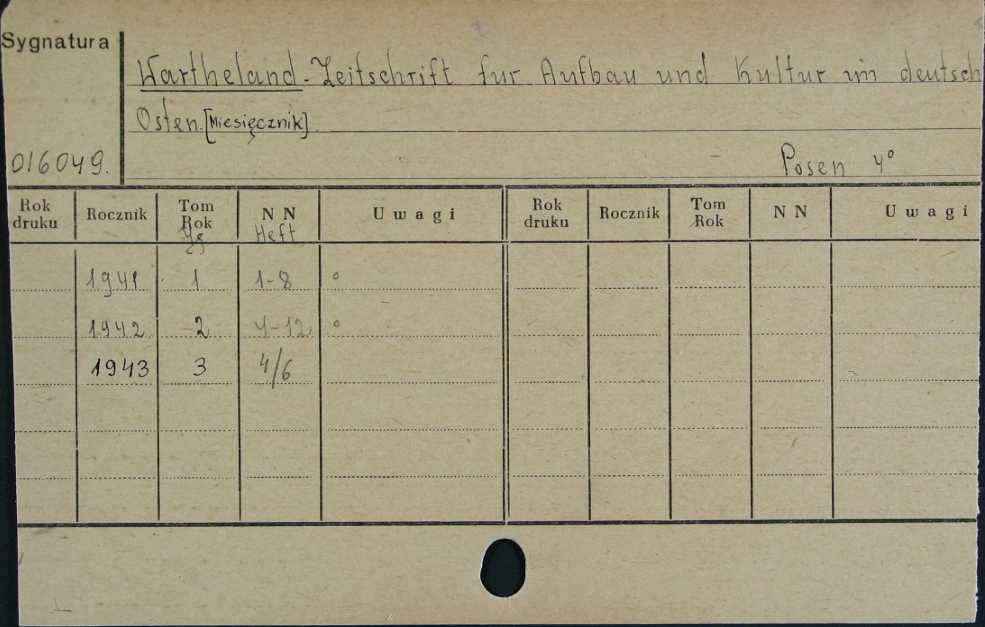 Sygnatura
Wartheland-Zeitschrift fur Aufbau und Kultur im deutsch
Osten.[Miesięcznik].
016049.
Posen 4°
Rok druku Rocznik Tom Rok NN Uwagi Rok druku Rocznik Tom Rok NN Uwagi
Jg Heft
1941 1 1-8 °
1942 2 4-12 °
1943 3 4/6